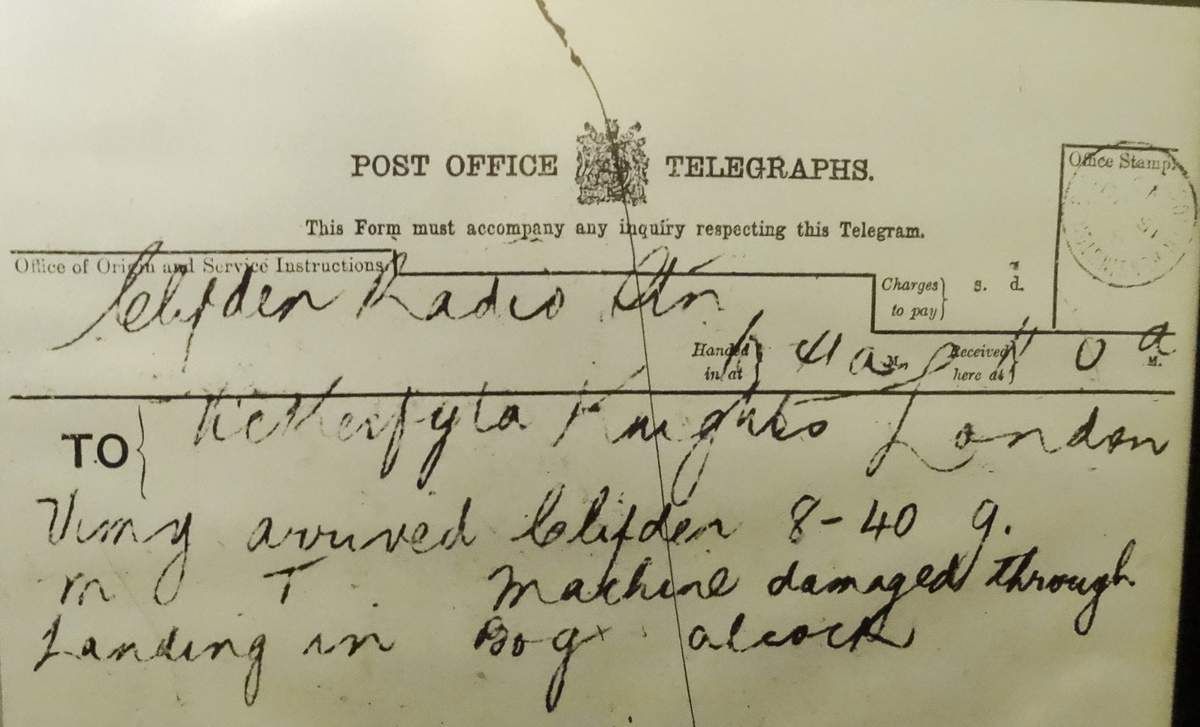 POST OFFICE TELEGRAPHS.
This Form must accompany any inquiry respecting this Telegram.
Office Stamp.
Office of Origin and Service Instructions.
Clifden Radio Stn
Charges to pay } s. d.
Handed in at } M. Received here at } M.
TO { Knights London
Vimy arrived Clifden 8-40 g.
m T. Machine damaged through
Landing in Bog x alcock